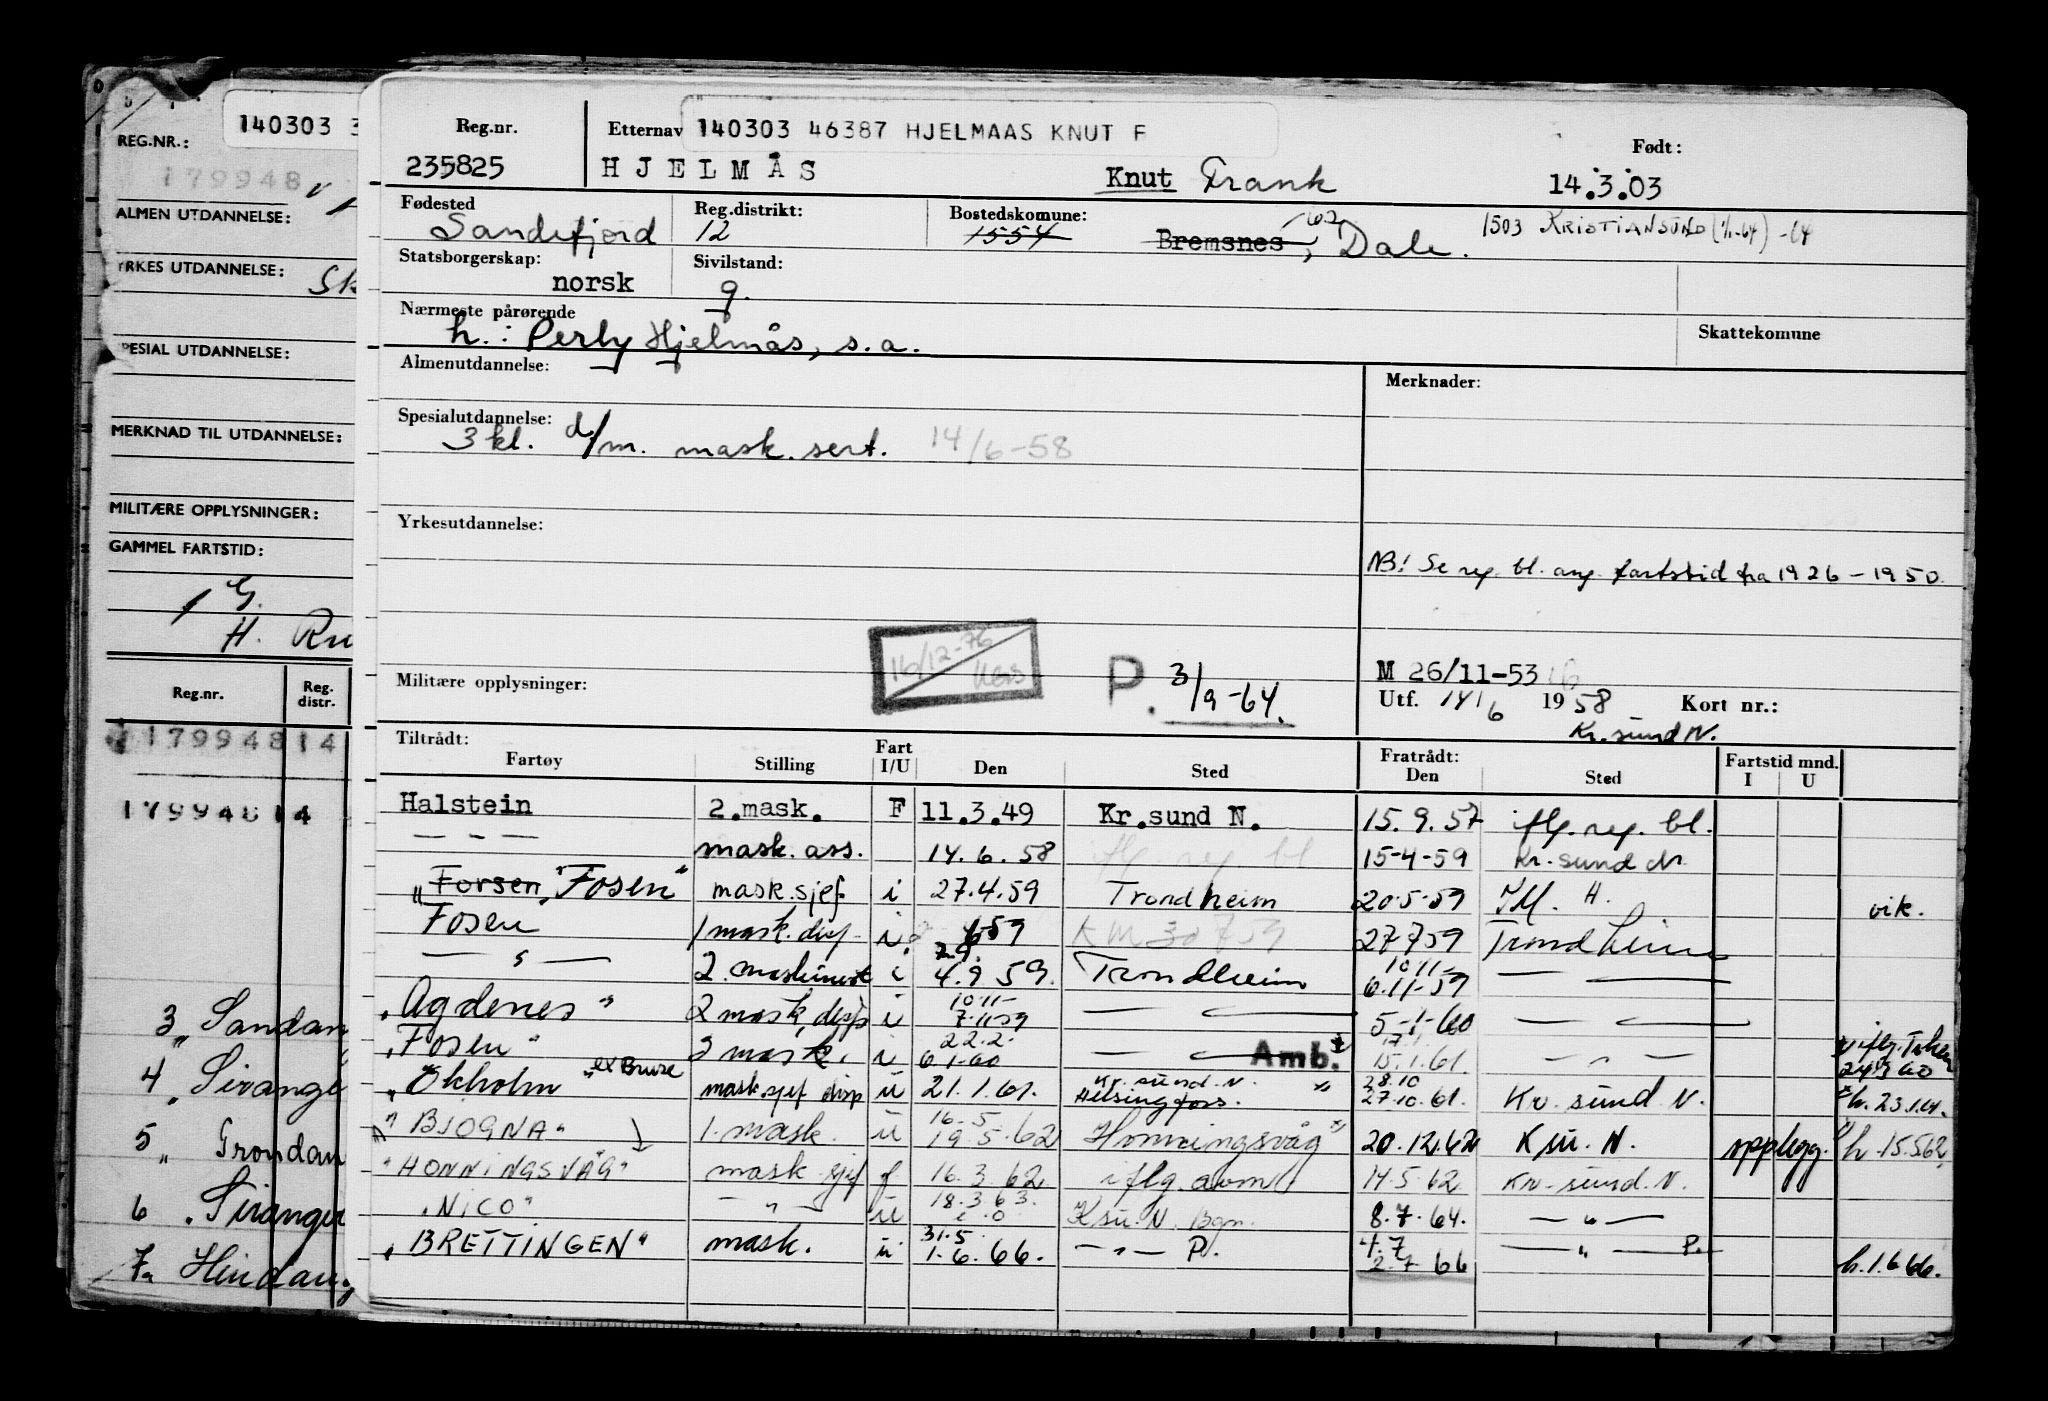 140303 3
REG.NR.:
179948
ALMEN UTDANNELSE:
YRKES UTDANNELSE: Sk
SPESIAL UTDANNELSE:
MERKNAD TIL UTDANNELSE:
MILITÆRE OPPLYSNINGER:
GAMMEL FARTSTID:
G.
H. Ru
Reg.nr. Reg. distr.
179948 14
179948 14
3 „Sandan
4 „Sirange
5 „ Trondan
6 „Siranger
7„ Hindang
Reg.nr. Etternav 140303 46387 HJELMAAS KNUT F Født:
235825 HJELMÅS Knut Frank 14.3.03
Fødested Reg.distrikt: Bostedskomune:
Sandefjord 12 1554 Bremsnes, 62 Dale. 1503 KRISTIANSUND (1/1-64) -64
Statsborgerskap: Sivilstand:
norsk g.
Nærmeste pårørende Skattekomune
h.: Perly Hjelmås, s.a.
Almenutdannelse: Merknader:
Spesialutdannelse:
3 kl. d/m. mask. sert. 14/6-58
Yrkesutdannelse:
NB! Se reg. bl. ang. fartstid fra 1926-1950.
16/12-76
P. 3/9-64.
M 26/11-53
Militære opplysninger: Utf. 14/6 1958 Kort nr.:
Kr.sund N.
Tiltrådt: Fart Fratrådt: Fartstid mnd.
Fartøy Stilling I/U Den Sted Den Sted I U
Halstein 2.mask. F 11.3.49 Kr.sund N. 15.9.57 iflg. reg. bl.
— — — mask. ass. 14.6.58 iflg. reg. bl. 15-4-59 Kr. sund N.
„Forsen „Fosen" mask.sjef i 27.4.59 Trondheim 20.5.59 vik.
Fosen 1 mask. disp. i 27 7 59 Trondheim
— " — 2. maskinist i 4.9.59. Trondheim 10.11- 6.11-59 — —
„Agdenes" 2 mask. disp i 10.11- 7.11.59 — — 5-1-60 — —
„Fosen" 2 mask. i 22.2. 6.1.60 — — Amb. 17.1. 15.1.61. — " — 24/3 60
„Ekholm" ex Bruse mask.sjef disp u 21.1.61. Kr. sund. N. Helsingfors. 28.10 27.10.61. Kr. sund. N. h. 23.1.61.
"BJOGNA" 1. mask. u 16.5 19.5.62 Honningsvåg 20.12.62 Ksu. N. opplegg. h. 15.5.62
"HONNINGSVÅG" mask sjef f 16.3.62 iflg. avm 14.5.62 Kr. sund. N.
„NICO" — " — u 18.3.63. Ksu. N. Bgn. 8.7.64. — " —
„BRETTINGEN" mask. u 31.5. 1.6.66. — " — P. 4.7 2.7 66 — " — P. h.1.6.66.